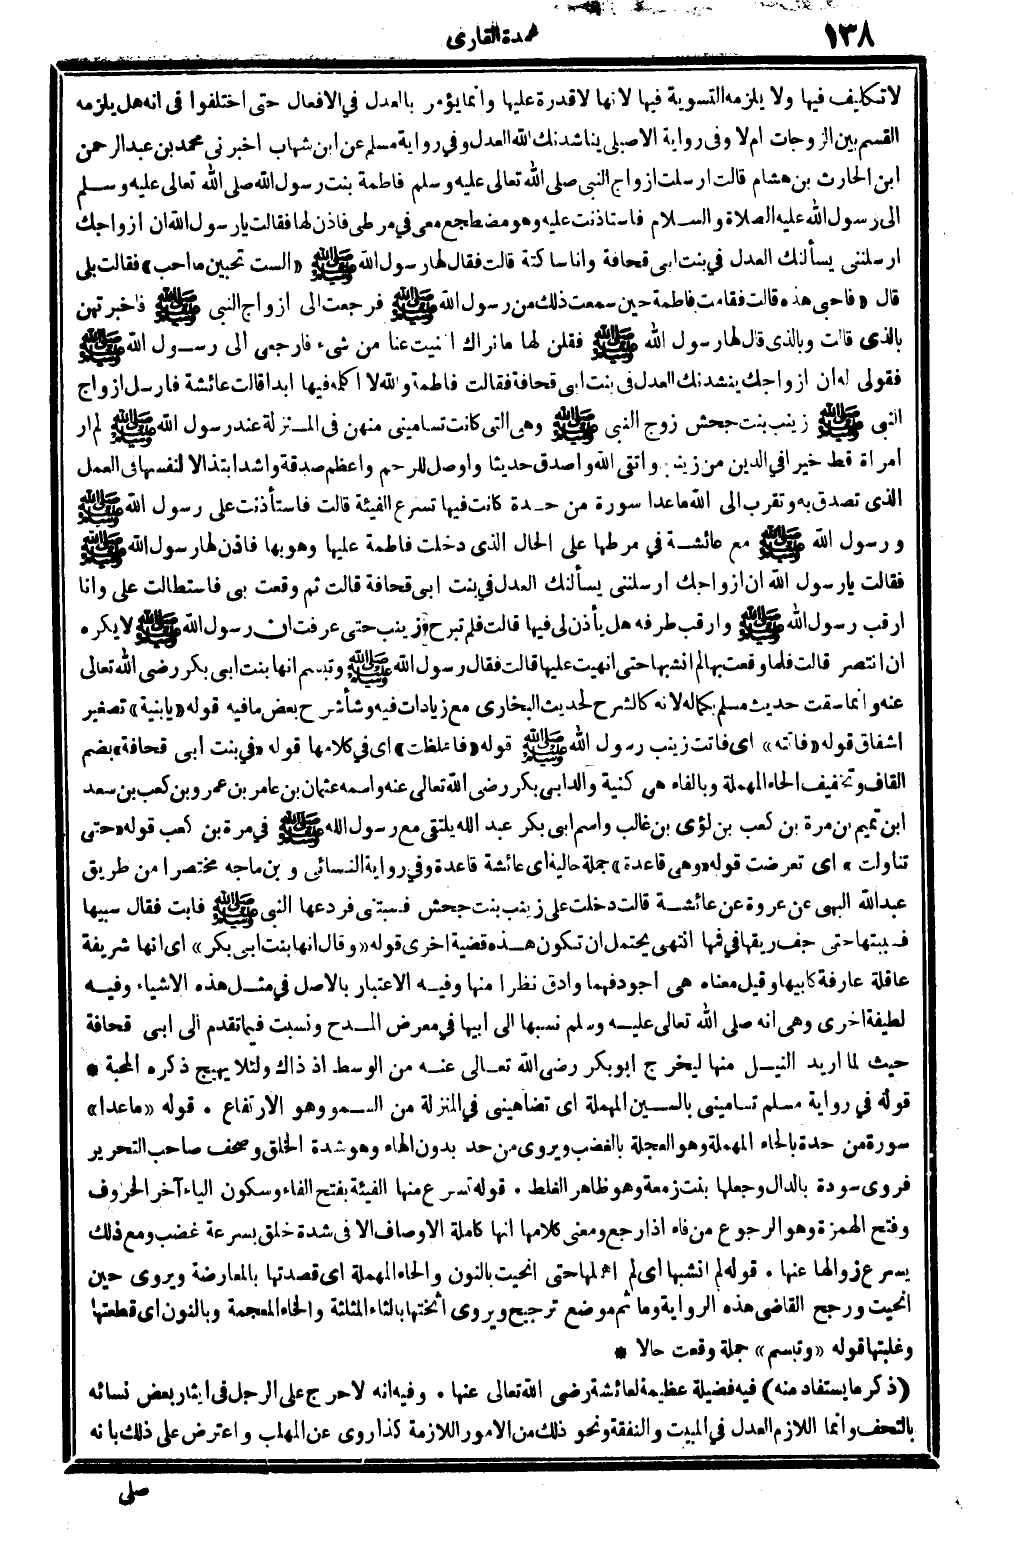 ١٣٨
عمدة القاري
لا تكليف فيها ولا يلزمه التسوية فيها لانها لا قدرة عليها وانما يؤمر بالعدل في الافعال حتى اختلفوا في انه هل يلزمه
القسم بين الزوجات ام لا وفى رواية الاصيلى يناشدنك الله العدل وفي رواية مسلم عن ابن شهاب اخبرنى محمد بن عبد الرحمن
ابن الحارث بن هشام قالت ارسلت ازواج النبى صلى الله تعالى عليه وسلم فاطمة بنت رسول الله صلى الله تعالى عليه وسلم
الى رسول الله عليه الصلاة والسلام فاستاذنت عليه وهو مضطجع معى في مرطى فاذن لها فقالت يا رسول الله ان ازواجك
ارسلننى يسألنك العدل في بنت ابى قحافة وانا ساكتة قالت فقال لها رسول الله ﷺ «الست تحبين ما احب» فقالت بلى
قال «فاحبى هذه قالت فقامت فاطمة حين سمعت ذلك من رسول الله ﷺ فرجعت الى ازواج النبى ﷺ فاخبرتهن
بالذى قالت وبالذى قال لها رسول الله ﷺ فقلن لها ما نراك اغنيت عنا من شىء فارجعى الى رسول الله ﷺ
فقولى له ان ازواجك ينشدنك العدل في بنت ابى قحافة فقالت فاطمة والله لا اكلمه فيها ابدا قالت عائشة فارسل ازواج
النبى ﷺ زينب بنت جحش زوج النبى ﷺ وهى التى كانت تسامينى منهن فى المنزلة عند رسول الله ﷺ لم ار
امراة قط خيرا في الدين من زينب واتقى الله واصدق حديثا واوصل للرحم واعظم صدقة واشد ابتذالا لنفسها فى العمل
الذى تصدق به وتقرب الى الله ما عدا سورة من حدة كانت فيها تسرع الفيئة قالت فاستأذنت على رسول الله ﷺ
ورسول الله ﷺ مع عائشة في مرطها على الحال الذى دخلت فاطمة عليها وهو بها فاذن لها رسول الله ﷺ
فقالت يا رسول الله ان ازواجك ارسلننى يسألنك العدل في بنت ابى قحافة قالت ثم وقعت بى فاستطالت على وانا
ارقب رسول الله ﷺ وارقب طرفه هل يأذن لى فيها قالت فلم تبرح زينب حتى عرفت ان رسول الله ﷺ لا يكره
ان انتصر قالت فلما وقعت بها لم انشبها حتى انحيت عليها قالت فقال رسول الله ﷺ وتبسم انها بنت ابى بكر رضى الله تعالى
عنه وانما سقت حديث مسلم بكماله لانه كالشرح لحديث البخارى مع زيادات فيه وشأشرح بعض ما فيه قوله «يا بنية» تصغير
اشفاق قوله «فاتته» اى فاتت زينب رسول الله ﷺ قوله «فاغلظت» اى في كلامها قوله «في بنت ابى قحافة» بضم
القاف وتخفيف الحاء المهملة وبالفاء هى كنية والد ابى بكر رضى الله تعالى عنه واسمه عثمان بن عامر بن عمرو بن كعب بن سعد
ابن تميم بن مرة بن كعب بن لؤى بن غالب واسم ابى بكر عبد الله يلتقى مع رسول الله ﷺ في مرة بن كعب قوله «حتى
تناولت» اى تعرضت قوله «وهى قاعدة» جملة حالية اى عائشة قاعدة وفي رواية النسائى وبن ماجه مختصرا من طريق
عبد الله البهى عن عروة عن عائشة قالت دخلت على زينب بنت جحش فسبتنى فردعها النبى ﷺ فابت فقال سبيها
فسببتها حتى جف ريقها في فمها انتهى يحتمل ان تكون هذه قضية اخرى قوله «وقال انها بنت ابى بكر» اى انها شريفة
عاقلة عارفة كابيها وقيل معناه هى اجود فهما وادق نظرا منها وفيه الاعتبار بالاصل في مثل هذه الاشياء وفيه
لطيفة اخرى وهى انه صلى الله تعالى عليه وسلم نسبها الى ابيها في معرض المدح ونسبت فيما تقدم الى ابى قحافة
حيث لما اريد النيل منها ليخرج ابو بكر رضى الله تعالى عنه من الوسط اذ ذاك ولئلا يهيج ذكره المحبة *
قوله في رواية مسلم تسامينى بالسين المهملة اى تضاهينى في المنزلة من السمو وهو الارتفاع . قوله «ما عدا»
سورة من حدة بالحاء المهملة وهو العجلة بالغضب ويروى من حد بدون الهاء وهو شدة الخلق وصحف صاحب التحرير
فروى سودة بالدال وجعلها بنت زمعة وهو ظاهر الغلط . قوله تسرع منها الفيئة بفتح الفاء وسكون الياء آخر الحروف
وفتح الهمزة وهو الرجوع من فاء اذا رجع ومعنى كلامها انها كاملة الاوصاف الا فى شدة خلق بسرعة غضب ومع ذلك
يسرع زوالها عنها . قوله لم انشبها أى لم امهلها حتى انحيت بالنون والحاء المهملة اى قصدتها بالمعارضة ويروى حين
انحيت ورجح القاضى هذه الرواية وما ثم موضع ترجيح ويروى اثخنتها بالثاء المثلثة والخاء المعجمة وبالنون اى قطعتها
وغلبتها قوله «وتبسم» جملة وقعت حالا *
(ذكر ما يستفاد منه) فيه فضيلة عظيمة لعائشة رضى الله تعالى عنها . وفيه انه لا حرج على الرجل فى ايثار بعض نسائه
بالتحف وانما اللازم العدل في المبيت والنفقة ونحو ذلك من الامور اللازمة كذا روى عن المهلب واعترض على ذلك بانه
صلى